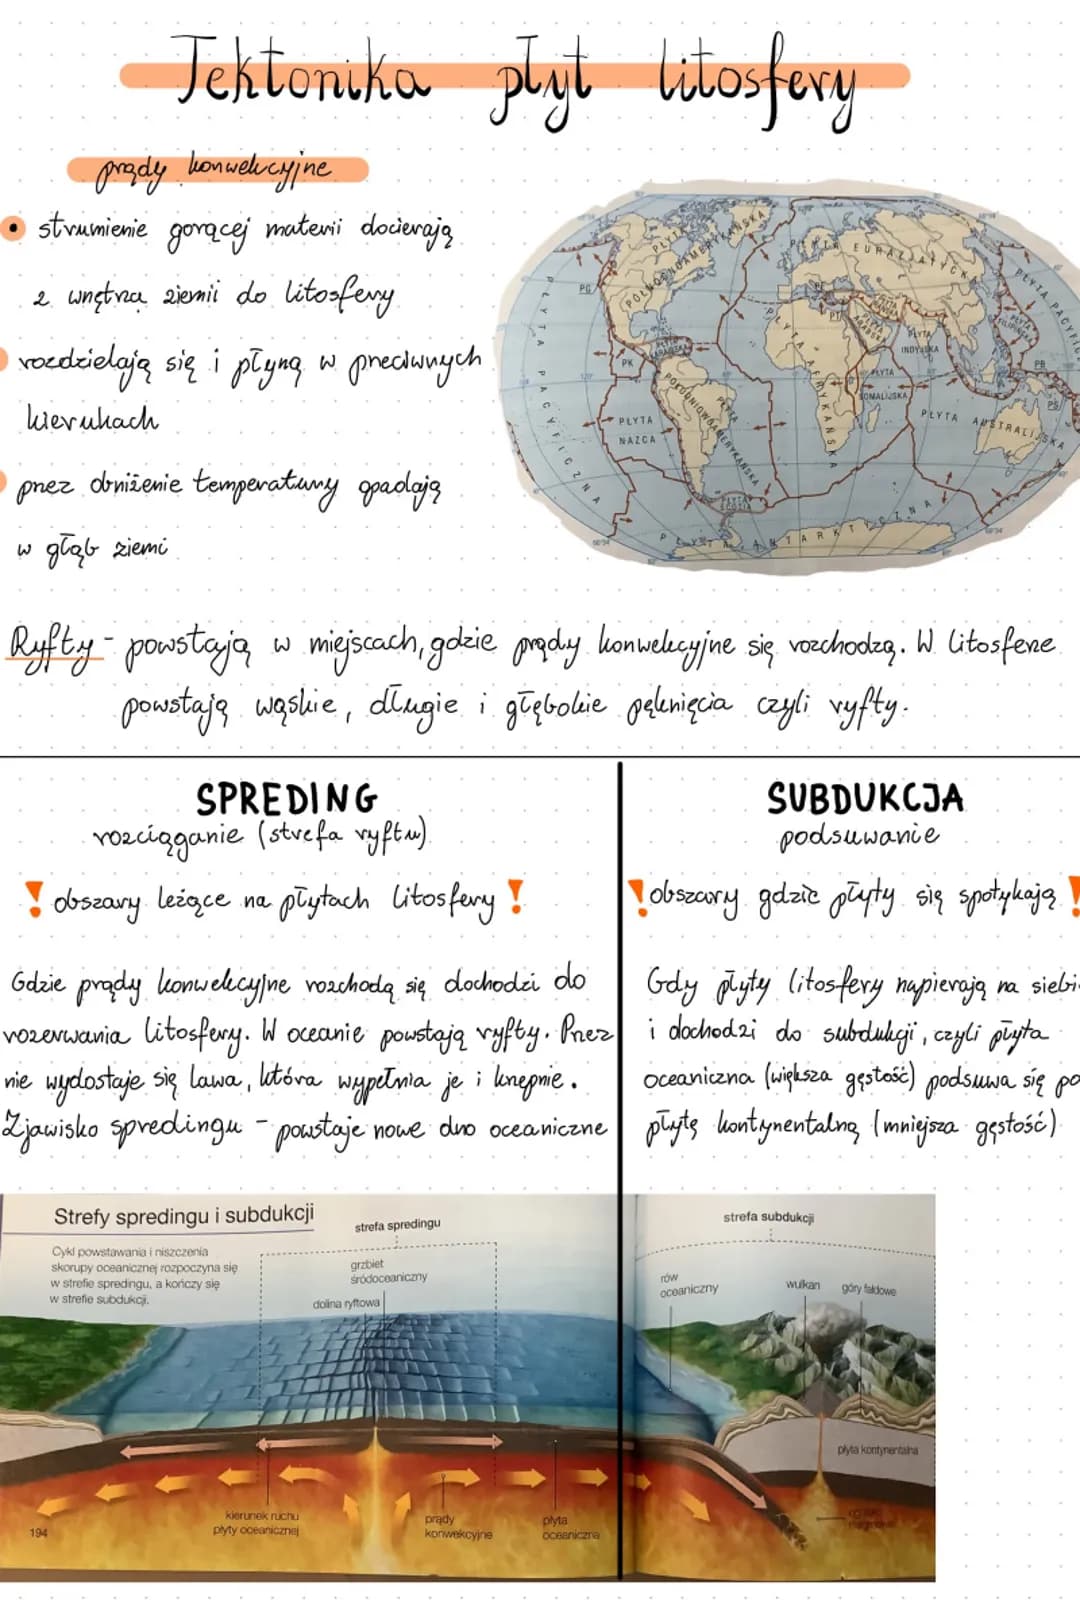 Tektonika płyt litosfery
prądy konwekcyjne
• strumienie gorącej materii docierają
z wnętrza ziemii do litosfery
rozdzielają się i płyną w przeciwnych
kierukach
przez obniżenie temperatury opadają
w głąb ziemi
PŁYTA PÓŁNOCNOAMERYKAŃSKA
PŁYTA EURAZJATYCKA
PŁYTA PACYFICZNA
PŁYTA PACYFICZNA
PG
PE
PT
PŁYTA ARABSKA
PŁYTA FILIPIŃSKA
PŁYTA INDYJSKA
PK
PŁYTA KARAIBSKA
PB
PS
PŁYTA AFRYKAŃSKA
PŁYTA SOMALIJSKA
PŁYTA NAZCA
PŁYTA POŁUDNIOWOAMERYKAŃSKA
PŁYTA AUSTRALIJSKA
PŁYTA SCOTIA
PŁYTA ANTARKTYCZNA
Ryfty - powstają w miejscach, gdzie prądy konwekcyjne się rozchodzą. W litosferze
powstają wąskie, długie i głębokie pęknięcia czyli ryfty.
SPREDING
rozciąganie (strefa ryftu)
! obszary leżące na płytach litosfery !
Gdzie prądy konwekcyjne rozchodą się dochodzi do
rozerwania litosfery. W oceanie powstają ryfty. Przez
nie wydostaje się lawa, która wypełnia je i krzepnie.
Zjawisko spredingu - powstaje nowe dno oceaniczne
SUBDUKCJA
podsuwanie
! obszary gdzie płyty się spotykają !
Gdy płyty litosfery napierają na siebi
i dochodzi do subdukcji, czyli płyta
oceaniczna (większa gęstość) podsuwa się po
płytę kontynentalną (mniejsza gęstość)
Strefy spredingu i subdukcji
Cykl powstawania i niszczenia
skorupy oceanicznej rozpoczyna się
w strefie spredingu, a kończy się
w strefie subdukcji.
strefa spredingu
grzbiet
śródoceaniczny
dolina ryftowa
strefa subdukcji
rów
oceaniczny
wulkan
góry fałdowe
płyta kontynentalna
kierunek ruchu
płyty oceanicznej
prądy
konwekcyjne
płyta
oceaniczna
194